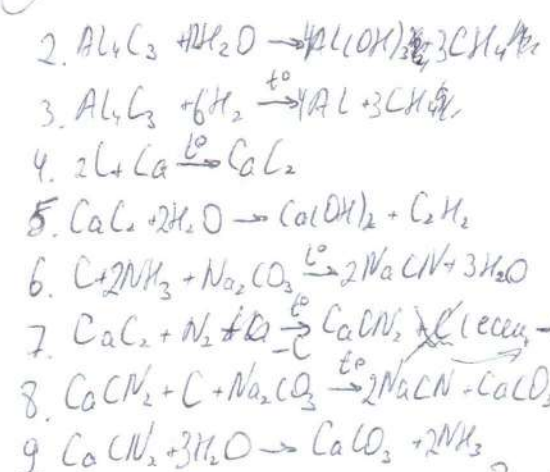 2. Al₄C₃ + 12H₂O → 4Al(OH)₃ + 3CH₄
3. Al₄C₃ + 6H₂ →t° 4Al + 3CH₄
4. 2C + Ca →t° CaC₂
5. CaC₂ + 2H₂O → Ca(OH)₂ + C₂H₂
6. C + 2NH₃ + Na₂CO₃ →t° 2NaCN + 3H₂O
7. CaC₂ + N₂ →t° -C CaCN₂
8. CaCN₂ + C + Na₂CO₃ →t° 2NaCN + CaCO₃
9 CaCN₂ + 3H₂O → CaCO₃ + 2NH₃